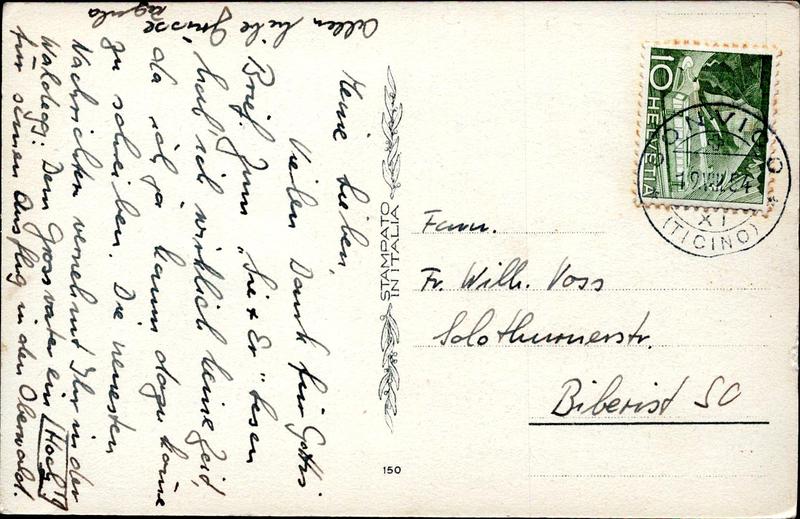 Meine Lieben,
Vielen Dank für Gottis
Brief. Zum "Sie + Er" lesen
hab ich wirklich keine Zeid,
da ich ja kaum dazu kome
zu schreiben. Die neuesten
Nachrichten vernehmt Ihr in der
Waldegg. Dem Grossvater ein "Hoch"!
für seinen Ausflug in den Oberwald.
Allen liebe Grüsse
STAMPATO
IN ITALIA
150
10
HELVETIA
SONVICO
XI
(TICINO)
Fam.
Fr. Wilh. Voss
Solothurnerstr.
Biberist SO